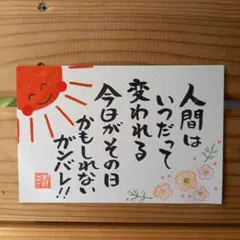 人間は
いつだって
変われる
今日がその日
かもしれない
ガンバレ!!